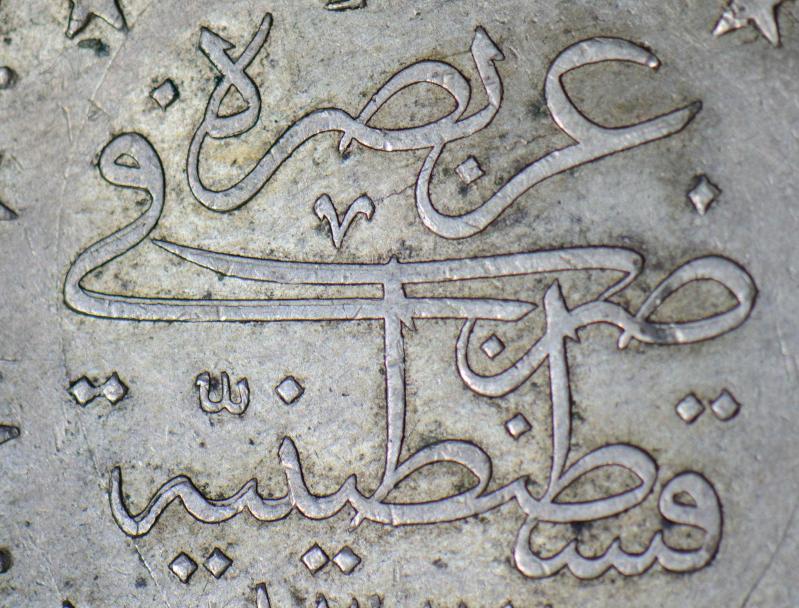 عز نصره
ضرب في
قسطنطينية